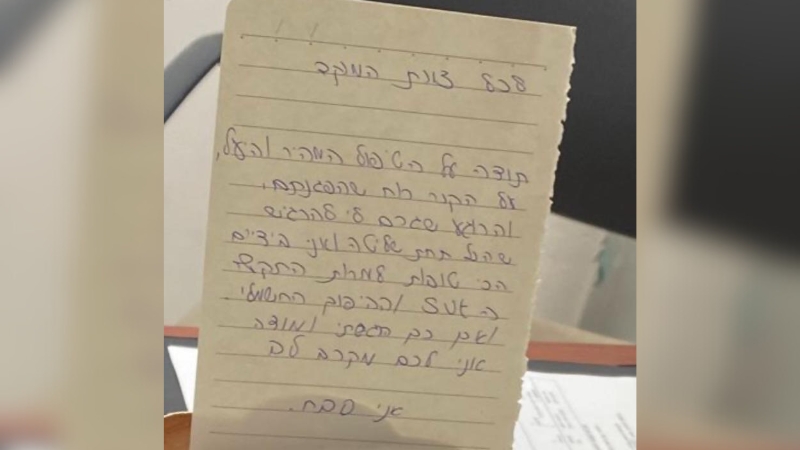 לכל צוות המוקד
תודה על הטיפול המהיר והיעל,
על הקור רוח שהפגנתם,
והרוגע שגרם לי להרגיש
שהכל תחת שליטה ואני בידיים
הכי טובות למרות התקף
ה SVT וההיפוך החשמלי
ומודה
אני לכם מקרב לב
אני סבח.